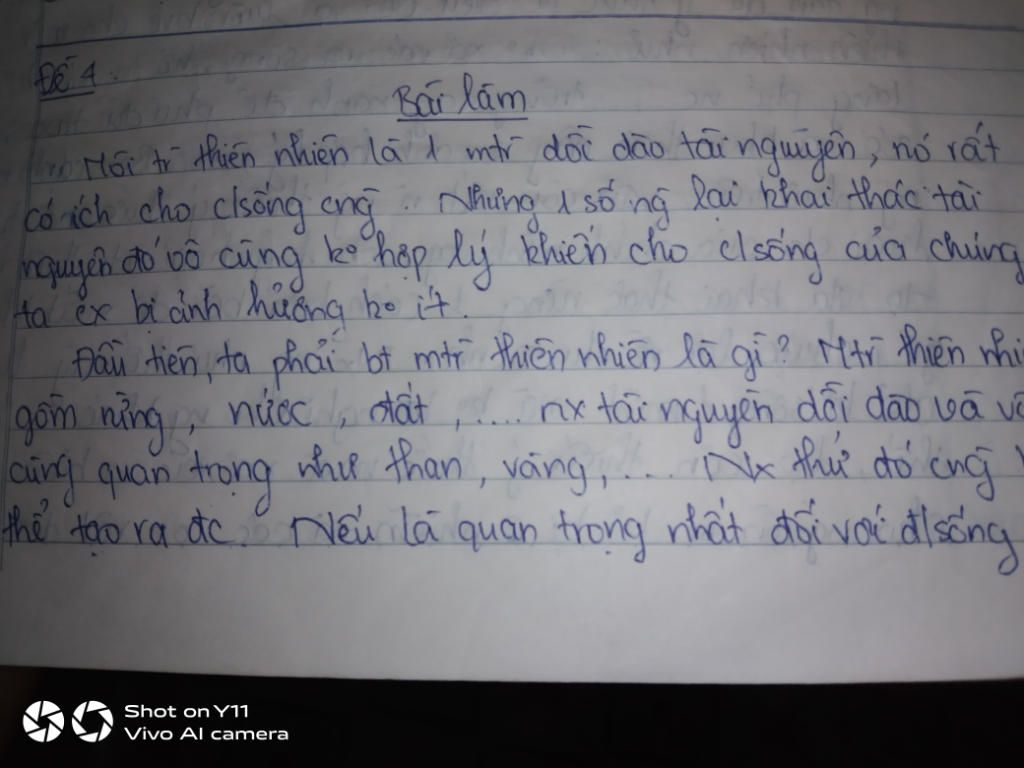 Đề 4.
Bài làm
Môi tr thiên nhiên là 1 mtr dồi dào tài nguyên, nó rất
có ích cho c/sống cng. Nhưng 1 số ng lại khai thác tài
nguyên đó vô cùng ko hợp lý khiến cho c/sống của chúng
ta cx bị ảnh hưởng ko ít.
Đầu tiên, ta phải bt mtr thiên nhiên là gì? Mtr thiên nhi
gồm rừng, nước, đất,.... nx tài nguyên dồi dào và vô
cùng quan trọng như than, vàng,... Nx thứ đó cng
thể tạo ra đc. Nếu là quan trọng nhất đối với đ/sống
Shot on Y11
Vivo AI camera